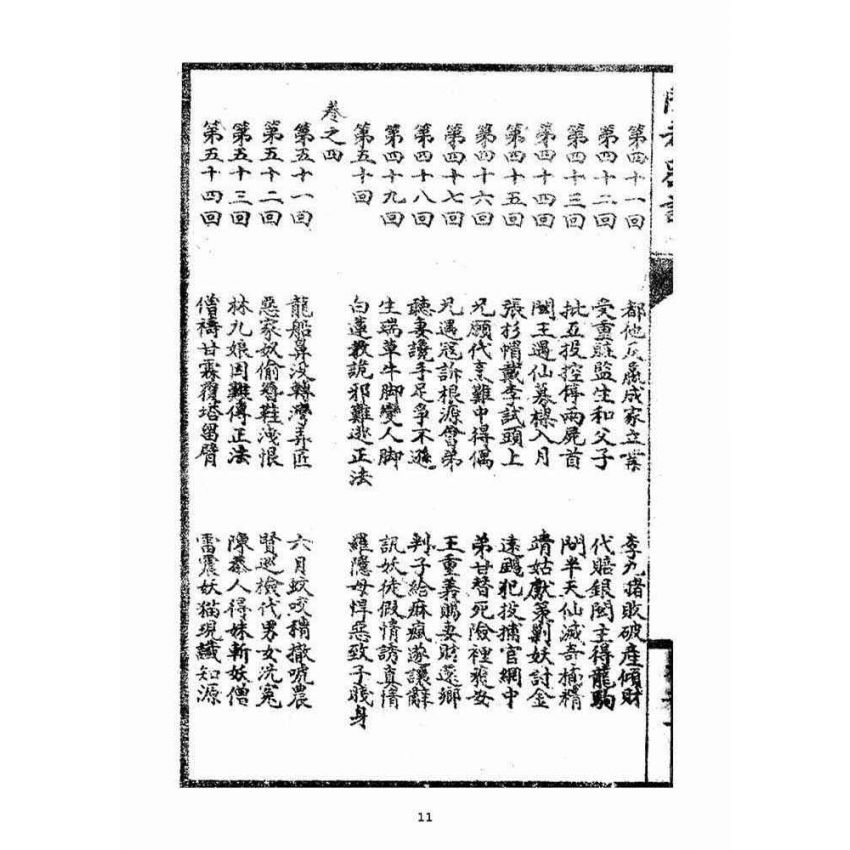 第四十一回 都他反贏成家立業 李九賭敗破產傾財
第四十二回 受重賍監生和父子 代賠銀閩主得龍駒
第四十三回 批丑投控停兩屍首 問半天仙滅奇捕精
第四十四回 閩王遇仙墓樸入月 靖姑獻策剿妖討金
第四十五回 張杉帽戴李試頭上 遠颺犯投捕官網中
第四十六回 兄願代烹難中得偶 弟甘替死險裡
第四十七回 兄遇冠訴根源會弟 王重義賜妻財還鄉
第四十八回 聽妻讒手足爭不遜 判子給麻瘋遂讓辭
第四十九回 生瑞草牛脚變人脚 訊妖徒假情誘真情
第五十回 白蓮教詭邪難逃正法 羅隱母悍惡致子賤身
卷之四
第五十一回 龍船鼻沒轉灣弄匠 六月蚊咬稍撤唬農
第五十二回 惡家奴偷鴛鞋洩恨 賢巡檢代男女洗冤
第五十三回 林九娘因難傳正法 陳夫人得妹斬妖僧
第五十四回 僧禱甘霖覆塔留臂 雷震妖猫現讖知源
11